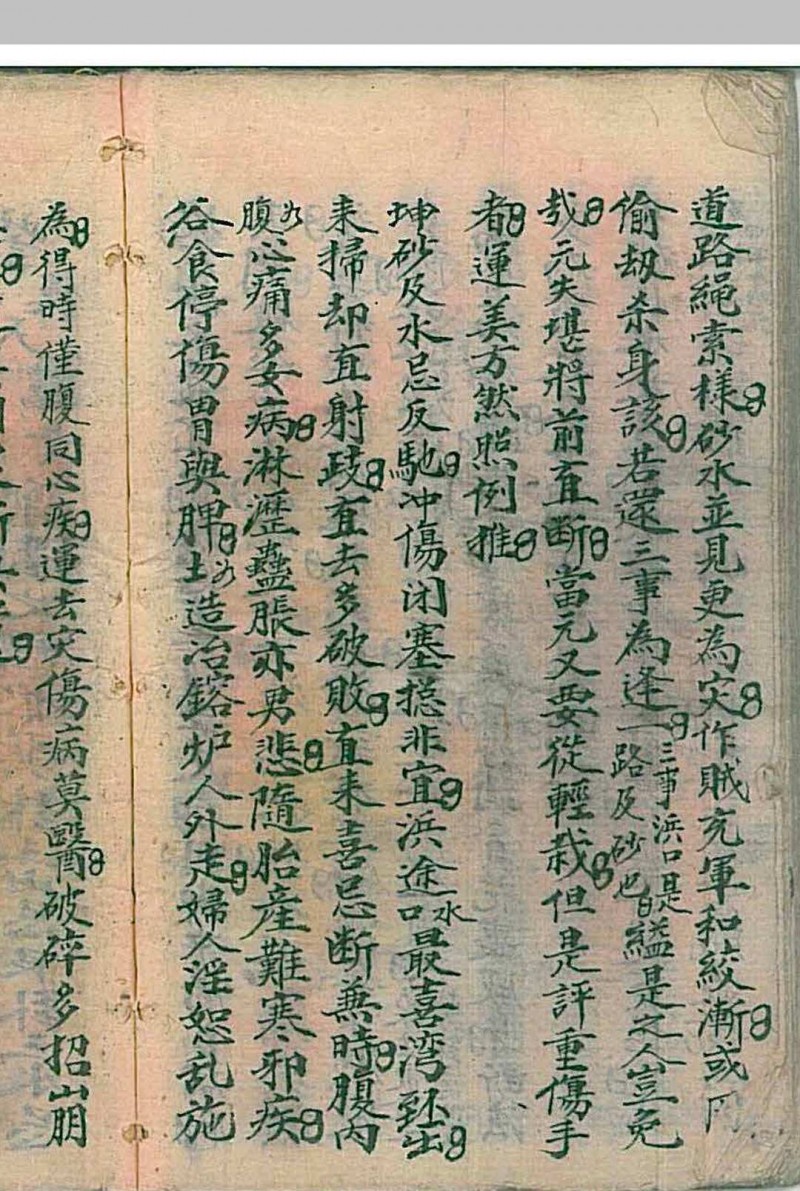 道路繩索樣砂水並見更為灾作賊充軍和絞漸或
偷刼杀身該若還三事為逢一三事浜口是路及砂也縊是之人豈免
哉元失堪將前直断當元又要從輕栽但是評重傷手
者運美方然照例推
坤砂及水忌反馳冲傷闭塞摠非宜浜途水口最喜湾环出
来掃却直射歧直去多破敗直来喜忌断兼時腹内
腹心痛多女病淋瀝蠱脹亦男悲隨胎産難寒邪疾
谷食停傷胃與脾土造冶鎔炉人外走婦人淫慾乱施
為得時僅腹同心疾運去灾傷病莫醫破碎多招山朋